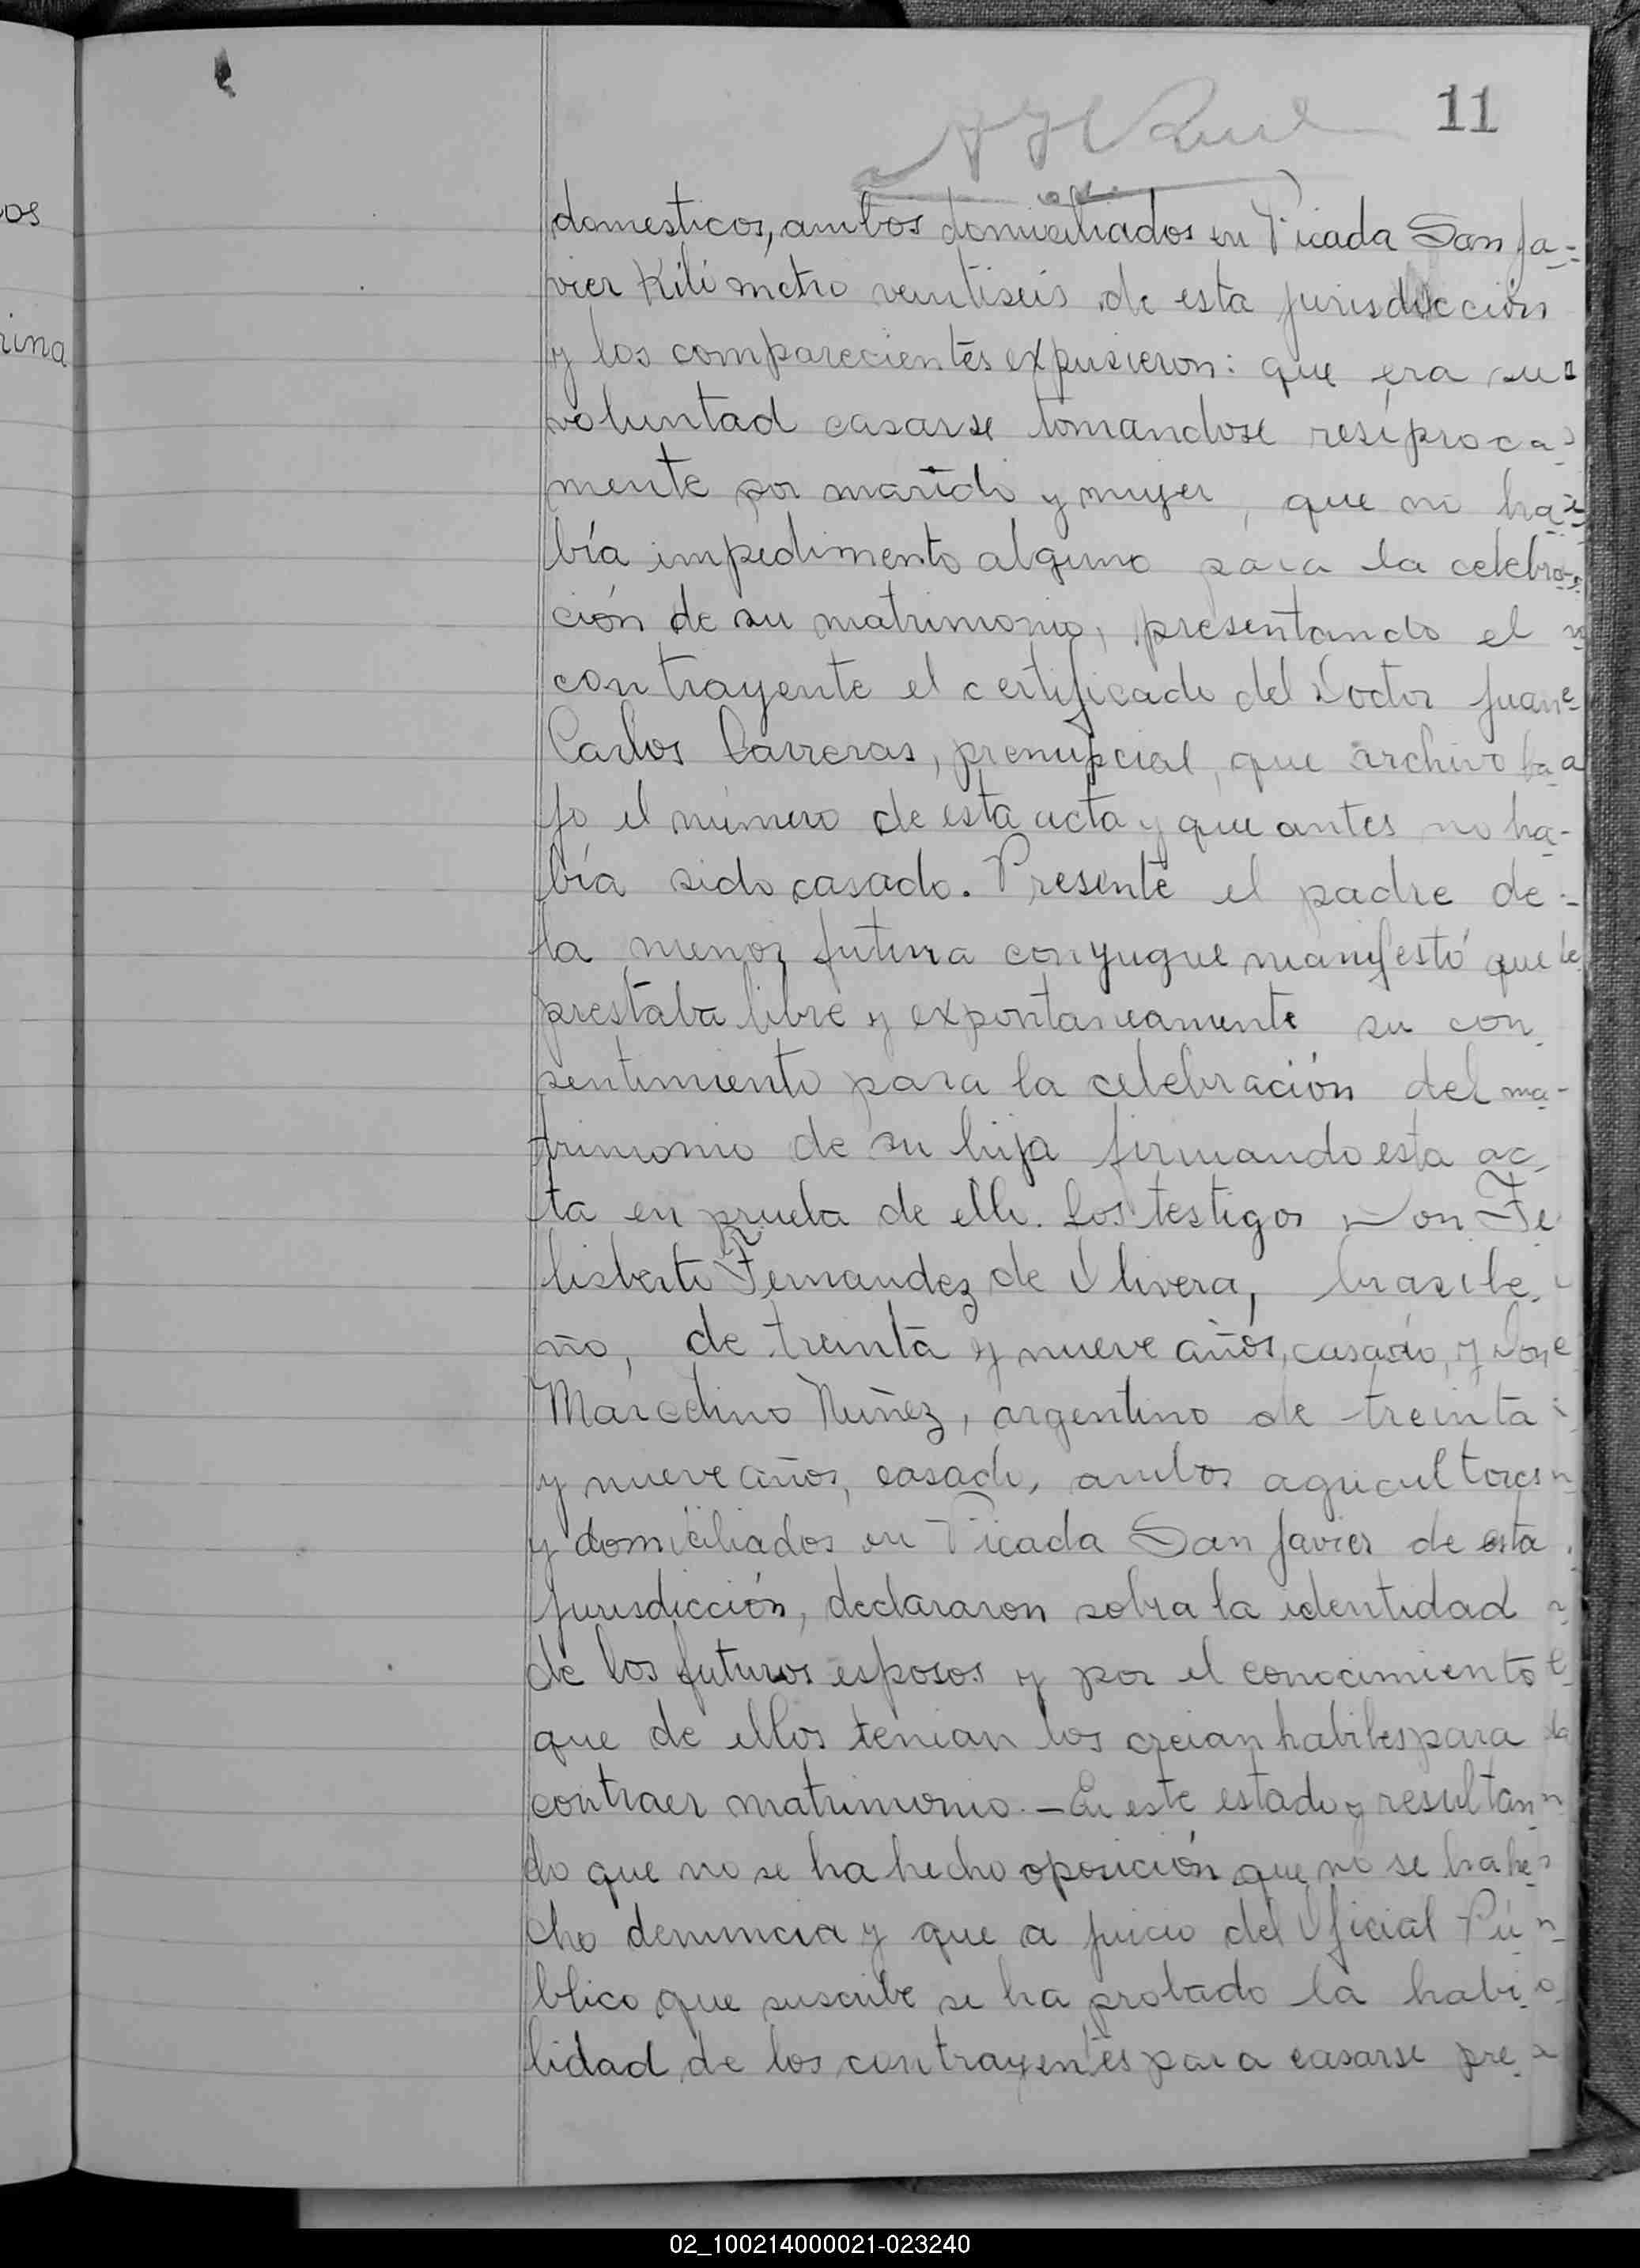 11
domesticos, ambos domiciliados en Picada San Ja-
vier Kilómetro veintiseis de esta jurisdicción
y los comparecientes expusieron: que era su
voluntad casarse tomandose resíproca-
mente por marido y mujer, que no ha-
bía impedimento alguno para la celebra-
ción de su matrimonio, presentando el
contrayente el certificado del Doctor Juan
Carlos Carreras, prenupcial, que archivo ba-
jo el número de esta acta y que antes no ha-
bía sido casado. Presente el padre de
la menor futura conyugue manifestó que
prestaba libre y expontaneamente su con-
sentimiento para la celebración del ma-
trimonio de su hija firmando esta ac-
ta en prueba de ello. Los testigos Don Fe
lisberto Fernandez de Olivera, brasile-
ño, de treinta y nueve años, casado, y Don
Marcelino Nuñez, argentino de treinta
y nueve años, casado, ambos agricultores
y domiciliados en Picada San Javier de esta
jurisdicción, declararon sobra la identidad
de los futuros esposos y por el conocimiento
que de ellos tenian los creian habiles para
contraer matrimonio. - En este estado y resultan-
do que no se ha hecho oposición que no se ha he-
cho denuncia y que a juicio del Oficial Pú-
blico que suscribe se ha probado la habi-
lidad de los contrayentes para casarse pre-
os
rina
02_100214000021-023240